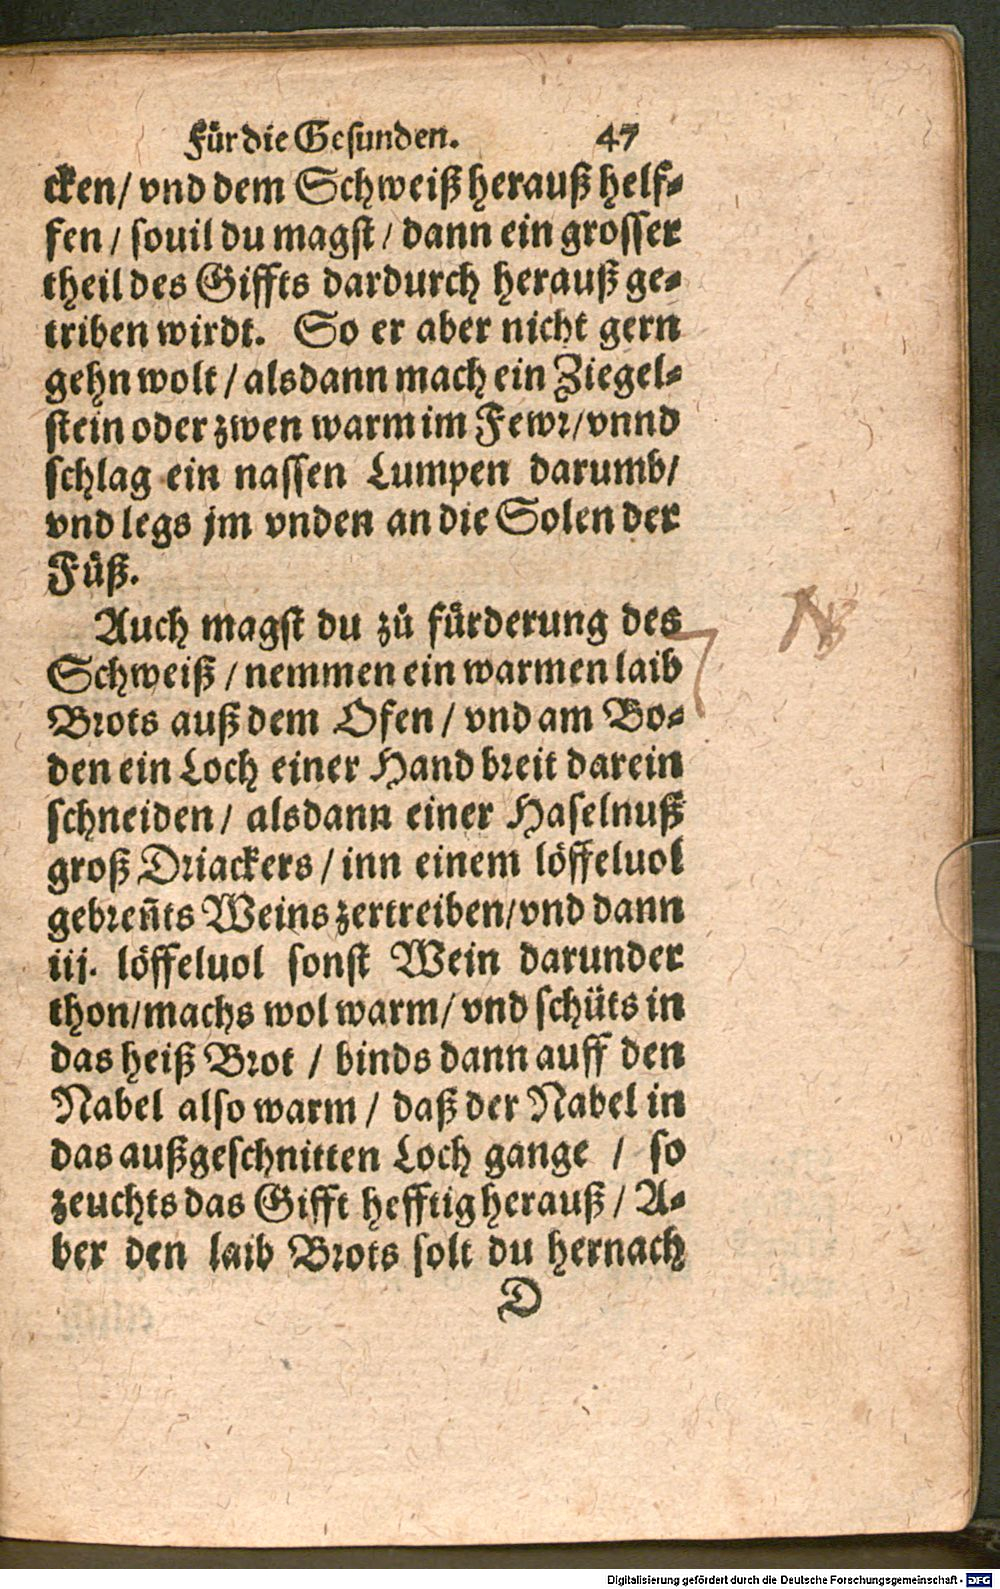 Für die Gesunden. 47
cken/ vnd dem Schweiß herauß helf-
fen / souil du magst / dann ein grosser
theil des Giffts dardurch herauß ge-
triben wirdt. So er aber nicht gern
gehn wolt / alsdann mach ein Ziegel-
stein oder zwen warm im Fewr/ vnnd
schlag ein nassen Lumpen darumb/
vnd legs jm vnden an die Solen der
Füß.
Auch magst du zů fürderung des
Schweiß / nemmen ein warmen laib
Brots auß dem Ofen / vnd am Bo-
den ein Loch einer Hand breit darein
schneiden / alsdann einer Haselnuß
groß Driackers / inn einem löffeluol
gebreñts Weins zertreiben/ vnd dann
iij. löffeluol sonst Wein darunder
thon/ machs wol warm/ vnd schüts in
das heiß Brot / binds dann auff den
Nabel also warm / daß der Nabel in
das außgeschnitten Loch gange / so
zeuchts das Gifft hefftig herauß / A-
ber den laib Brots solt du hernach
D
NB
Digitalisierung gefördert durch die Deutsche Forschungsgemeinschaft - DFG